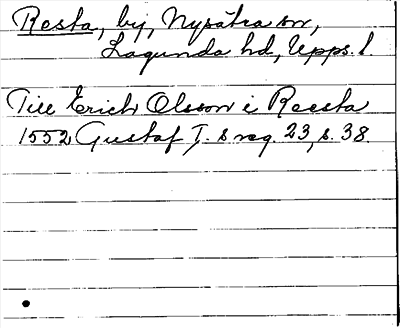 Resta, by, Nysätra sn,
Lagunda hd, Upps. l.
Till Erich Olsson i Reesta
1552 Gustaf I. s reg. 23, s. 38.